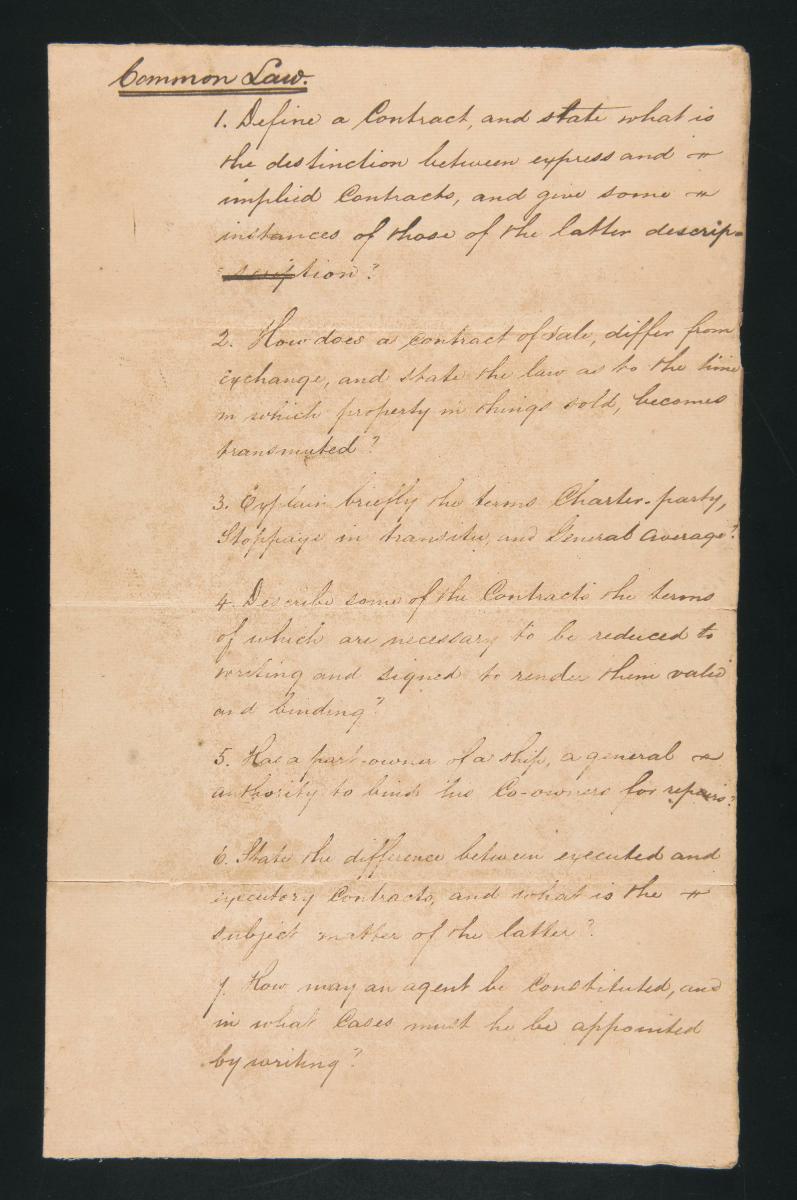 Common Law.
1. Define a Contract, and state what is
the distinction between express and
implied Contracts, and give some
instances of those of the latter descrip-
scription?
2. How does a contract of sale, differ from
exchange, and state the law as to the time
in which property in things sold, becomes
transmuted?
3. Explain briefly the terms Charter-party,
Stoppage in transitu, and General Average?
4. Describe some of the Contracts the terms
of which are necessary to be reduced to
writing and signed to render them valid
and binding?
5. Has a part-owner of a ship, a general
authority to bind his Co-owners for repairs?
6. State the difference between executed and
executory Contracts, and what is the
subject matter of the latter?
7. How may an agent be constituted, and
in what Cases must he be appointed
by writing?